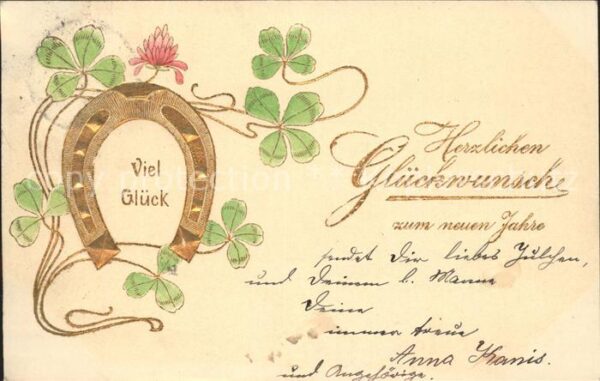 Viel
Glück
Herzlichen
Glückwunsch
zum neuen Jahre
sendet Dir liebes Julchen,
und Deinem l. Manne
Deine
immer treue
Anna Kanis.
und Angehörige.